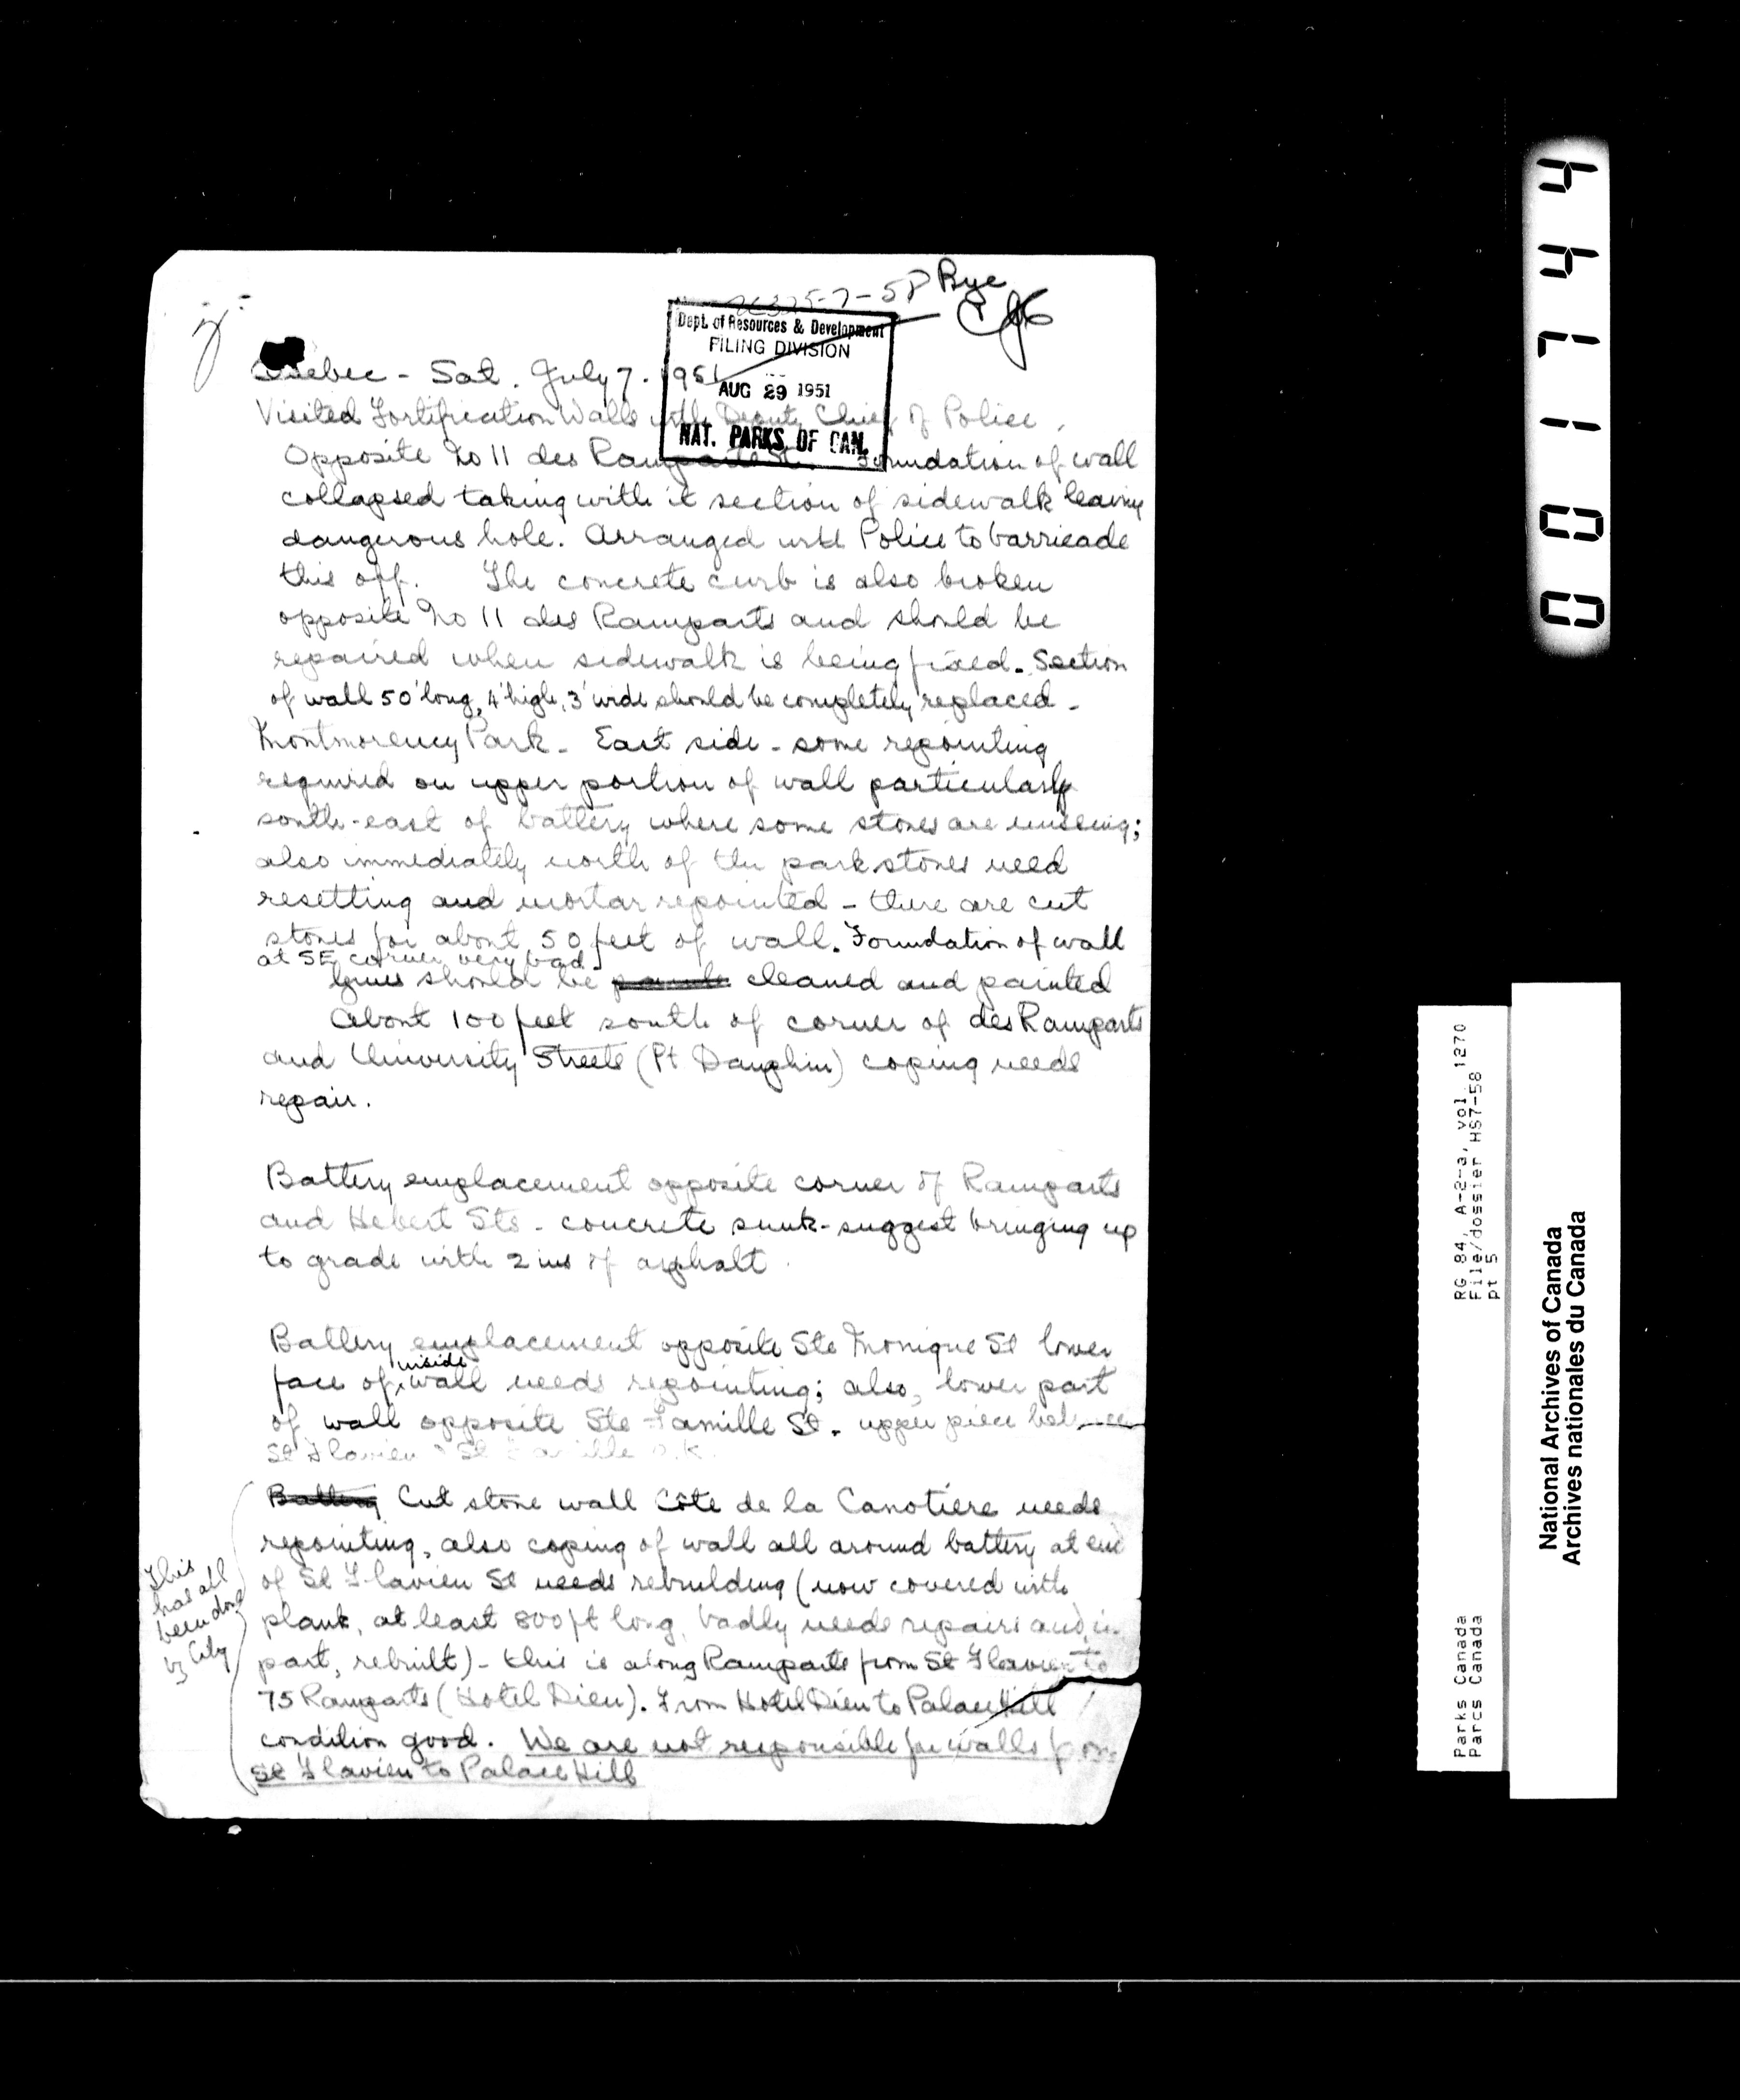 Bye
Dept. of Resources & Development
FILING DIVISION
AUG 29 1951
NAT. PARKS OF CAN.
Quebec - Sat. July 7. 1951
Visited Fortification Walls with Deputy Chief of Police.
Opposite No 11 des Ramparts St. Foundation of wall
collapsed taking with it section of sidewalk leaving
dangerous hole. Arranged with Police to barricade
this off. The concrete curb is also broken
opposite No 11 des Ramparts and should be
repaired when sidewalk is being fixed. Section
of wall 50' long, 4' high, 3' wide should be completely replaced -
Montmorency Park - East side - some repointing
required on upper portion of wall particularly
south-east of battery where some stones are missing;
also immediately north of the park stones need
resetting and mortar repointed - there are cut
stones for about 50 feet of wall. Foundation of wall
at SE corner very bad
Guns should be cleaned and painted
About 100 feet south of corner of des Ramparts
and University Streets (Pt Dauphin) coping needs
repair.
Battery emplacement opposite corner of Ramparts
and Hebert Sts - concrete sunk - suggest bringing up
to grade with 2 ins of asphalt.
Battery emplacement opposite Ste Monique St lower
face of inside wall needs repointing; also, lower part
of wall opposite Ste Famille St. upper piece between
St Flavien & St Famille O.K.
Battery Cut stone wall Côte de la Canotière needs
repointing, also coping of wall all around battery at end
of St Flavien St needs rebuilding (now covered with
plank, at least 800 ft long, badly needs repairs and, in
part, rebuilt) - this is along Ramparts from St Flavien to
75 Ramparts (Hotel Dieu). From Hotel Dieu to Palace Hill
condition good. We are not responsible for walls from
St Flavien to Palace Hill
This
has all
been done
by City
0017444
RG 84, A-2-a, vol. 1270
File/dossier HS7-58
pt 5
Parks Canada
Parcs Canada
National Archives of Canada
Archives nationales du Canada